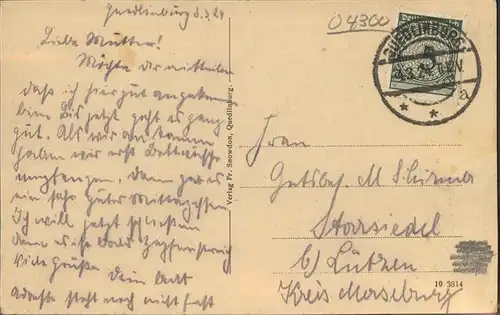 Quedlinburg 8.3.24
Liebe Mutter!
Möchte dir mitteilen
daß ich hier gut angekommen
bin bis jetzt geht es ganz
gut. Als wir an kamen
haben wir erst Bettwäsche
empfangen. Dann gab es
ein sehr gutes Mittagessen
Ich will jetzt schließen
denn es ist bald Zapfenstreich
Viele Grüße Dein
Adresse steht noch nicht fest
Verlag Fr. Snowdon, Quedlinburg.
04300
QUEDLINBURG
5
a
Frau
Gutsbes. M
Starsiedel
b/ Lützen
Kreis Merseburg
19 3814